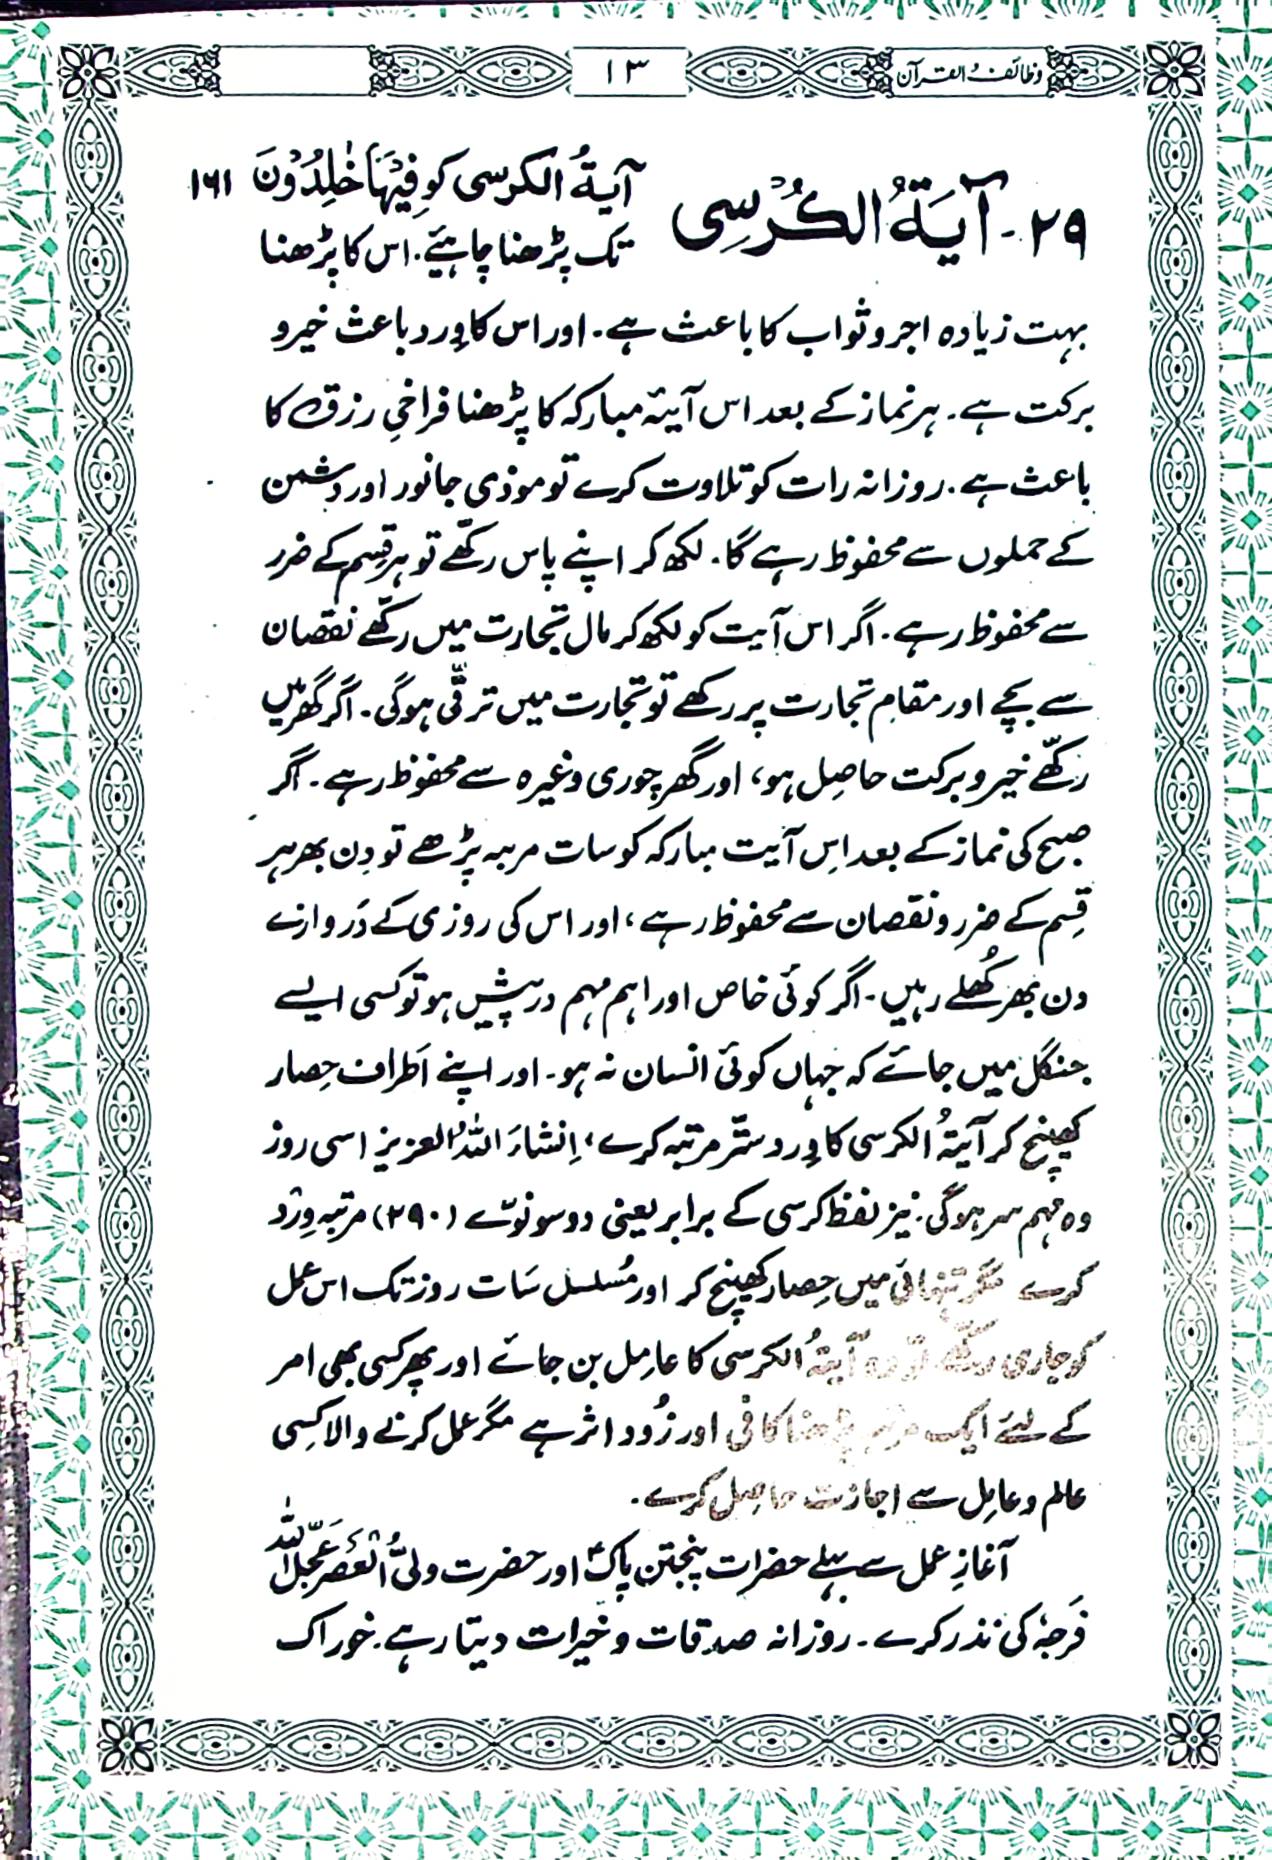 وظائف القرآن
۱۳
۲۹۔ آیَةُ الکُرْسِی
آیةُ الکرسی کو فِیْهَا خٰلِدُوْنَ ۱۶۱
تک پڑھنا چاہیئے. اس کا پڑھنا
بہت زیادہ اجر و ثواب کا باعث ہے۔ اور اس کا وِرد باعث خیر و
برکت ہے۔ ہر نماز کے بعد اس آیۂ مبارکہ کا پڑھنا فراخیِ رزق کا
باعث ہے. روزانہ رات کو تلاوت کرے تو موذی جانور اور دشمن
کے حملوں سے محفوظ رہے گا. لکھ کر اپنے پاس رکھّے تو ہر قِسم کے ضرر
سے محفوظ رہے۔ اگر اس آیت کو لکھ کر مال تجارت میں رکھّے نقصان
سے بچے اور مقامِ تجارت پر رکھے تو تجارت میں ترقّی ہوگی۔ اگر گھر میں
رکھّے خیر و برکت حاصِل ہو، اور گھر چوری وغیرہ سے محفوظ رہے۔ اگر
صبح کی نماز کے بعد اِس آیت مبارکہ کو سات مرتبہ پڑھے تو دِن بھر ہر
قِسم کے ضرر و نقصان سے محفوظ رہے، اور اس کی روزی کے دَروازے
دن بھر کُھلے رہیں۔ اگر کوئی خاص اور اہم مہم درپیش ہو تو کسی ایسے
جنگل میں جائے کہ جہاں کوئی انسان نہ ہو۔ اور اپنے اَطراف حِصار
کھینچ کر آیَةُ الکرسی کا وِرد ستّر مرتبہ کرے، اِنشاءَ اللہُ العزیز اسی روز
وہ مہم سر ہوگی. نیز لفظ کرسی کے برابر یعنی دو سو نوّے (۲۹۰) مرتبہ وِرْد
کرے مگر تنہائی میں حِصار کھینچ کر اور مُسلسل سَات روز تک اس عمل
کو جاری رکھّے تو وہ آیَةُ الکرسی کا عامِل بن جائے اور پھر کسی بھی امر
کے لئے ایک مرتبہ پڑھنا کافی اور زُود اثر ہے مگر عمل کرنے والا کِسی
عالم و عامِل سے اجازت حاصِل کرے۔
آغازِ عمل سے پہلے حضرات پنجتن پاکؑ اور حضرت ولیُّ الْعَصْرِ عَجَّلَ اللّٰہ
فَرَجَہٗ کی نذر کرے۔ روزانہ صدقات و خیرات دیتا رہے. خوراک